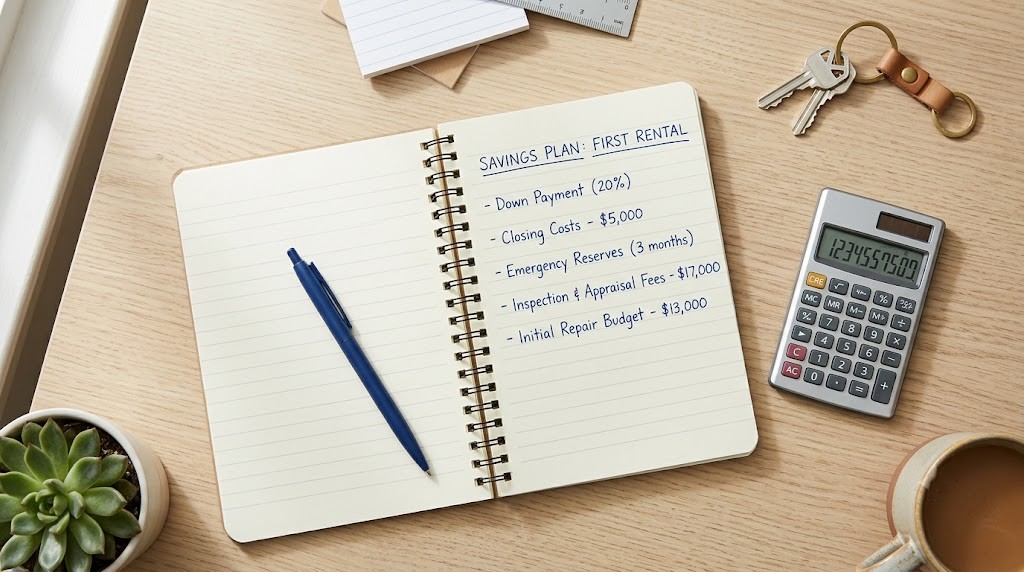 SAVINGS PLAN: FIRST RENTAL
- Down Payment (20%)
- Closing Costs - $5,000
- Emergency Reserves (3 months)
- Inspection & Appraisal Fees - $17,000
- Initial Repair Budget - $13,000
MC MR M- M+ ÷
% 7 8 9 ×
▶ 4 5 6 −
C 1 2 3
AC 0 · = +